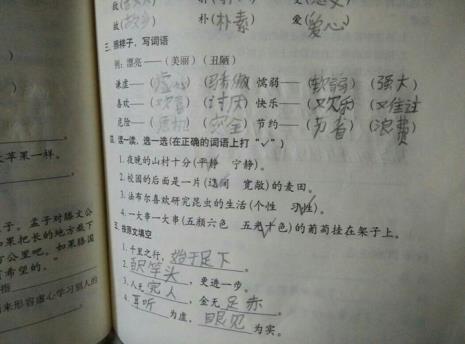 故(故乡) 朴(朴素) 爱(爱心)
三、照样子,写词语
例:漂亮——(美丽)(丑陋)
谦虚——(虚心)(骄傲) 懦弱——(软弱)(强大)
喜欢——(欢喜)(讨厌) 快乐——(欢乐)(难过)
危险——( )(安全) 节约——(节省)(浪费)
四、读一读,选一选(在正确的词语上打"√")
1.夜晚的山村十分(平静 宁静)。
2.校园的后面是一片( 宽敞)的麦田。
3.法布尔喜欢研究昆虫的生活(个性 习性)。
4.一大串一大串(五颜六色 五光十色)的葡萄挂在架子上。
五、按原文填空
1.千里之行,始于足下。
2.百尺竿头,更进一步。
3.人无完人,金无足赤。
4.耳听为虚,眼见为实。
苹果一样。
子。孟子对滕文公
如果把长的地方截下
方公里吧。如果滕国
有希望的。"
指
来形容虚心学习别人的